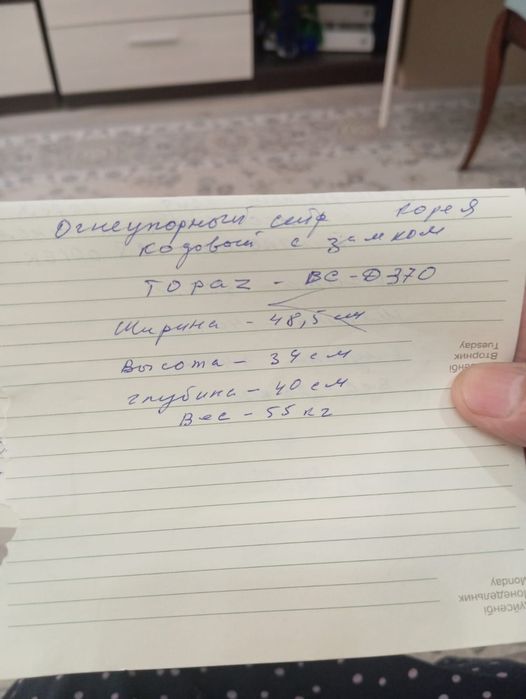 Огнеупорный сейф Корея
кодовый с замком
TOPAZ - BC-D370
Ширина - 48,5 см
Высота - 34 см
глубина - 40 см
Вес - 55 кг
сенбі
Вторник
Tuesday
дүйсенбі
Понедельник
Monday